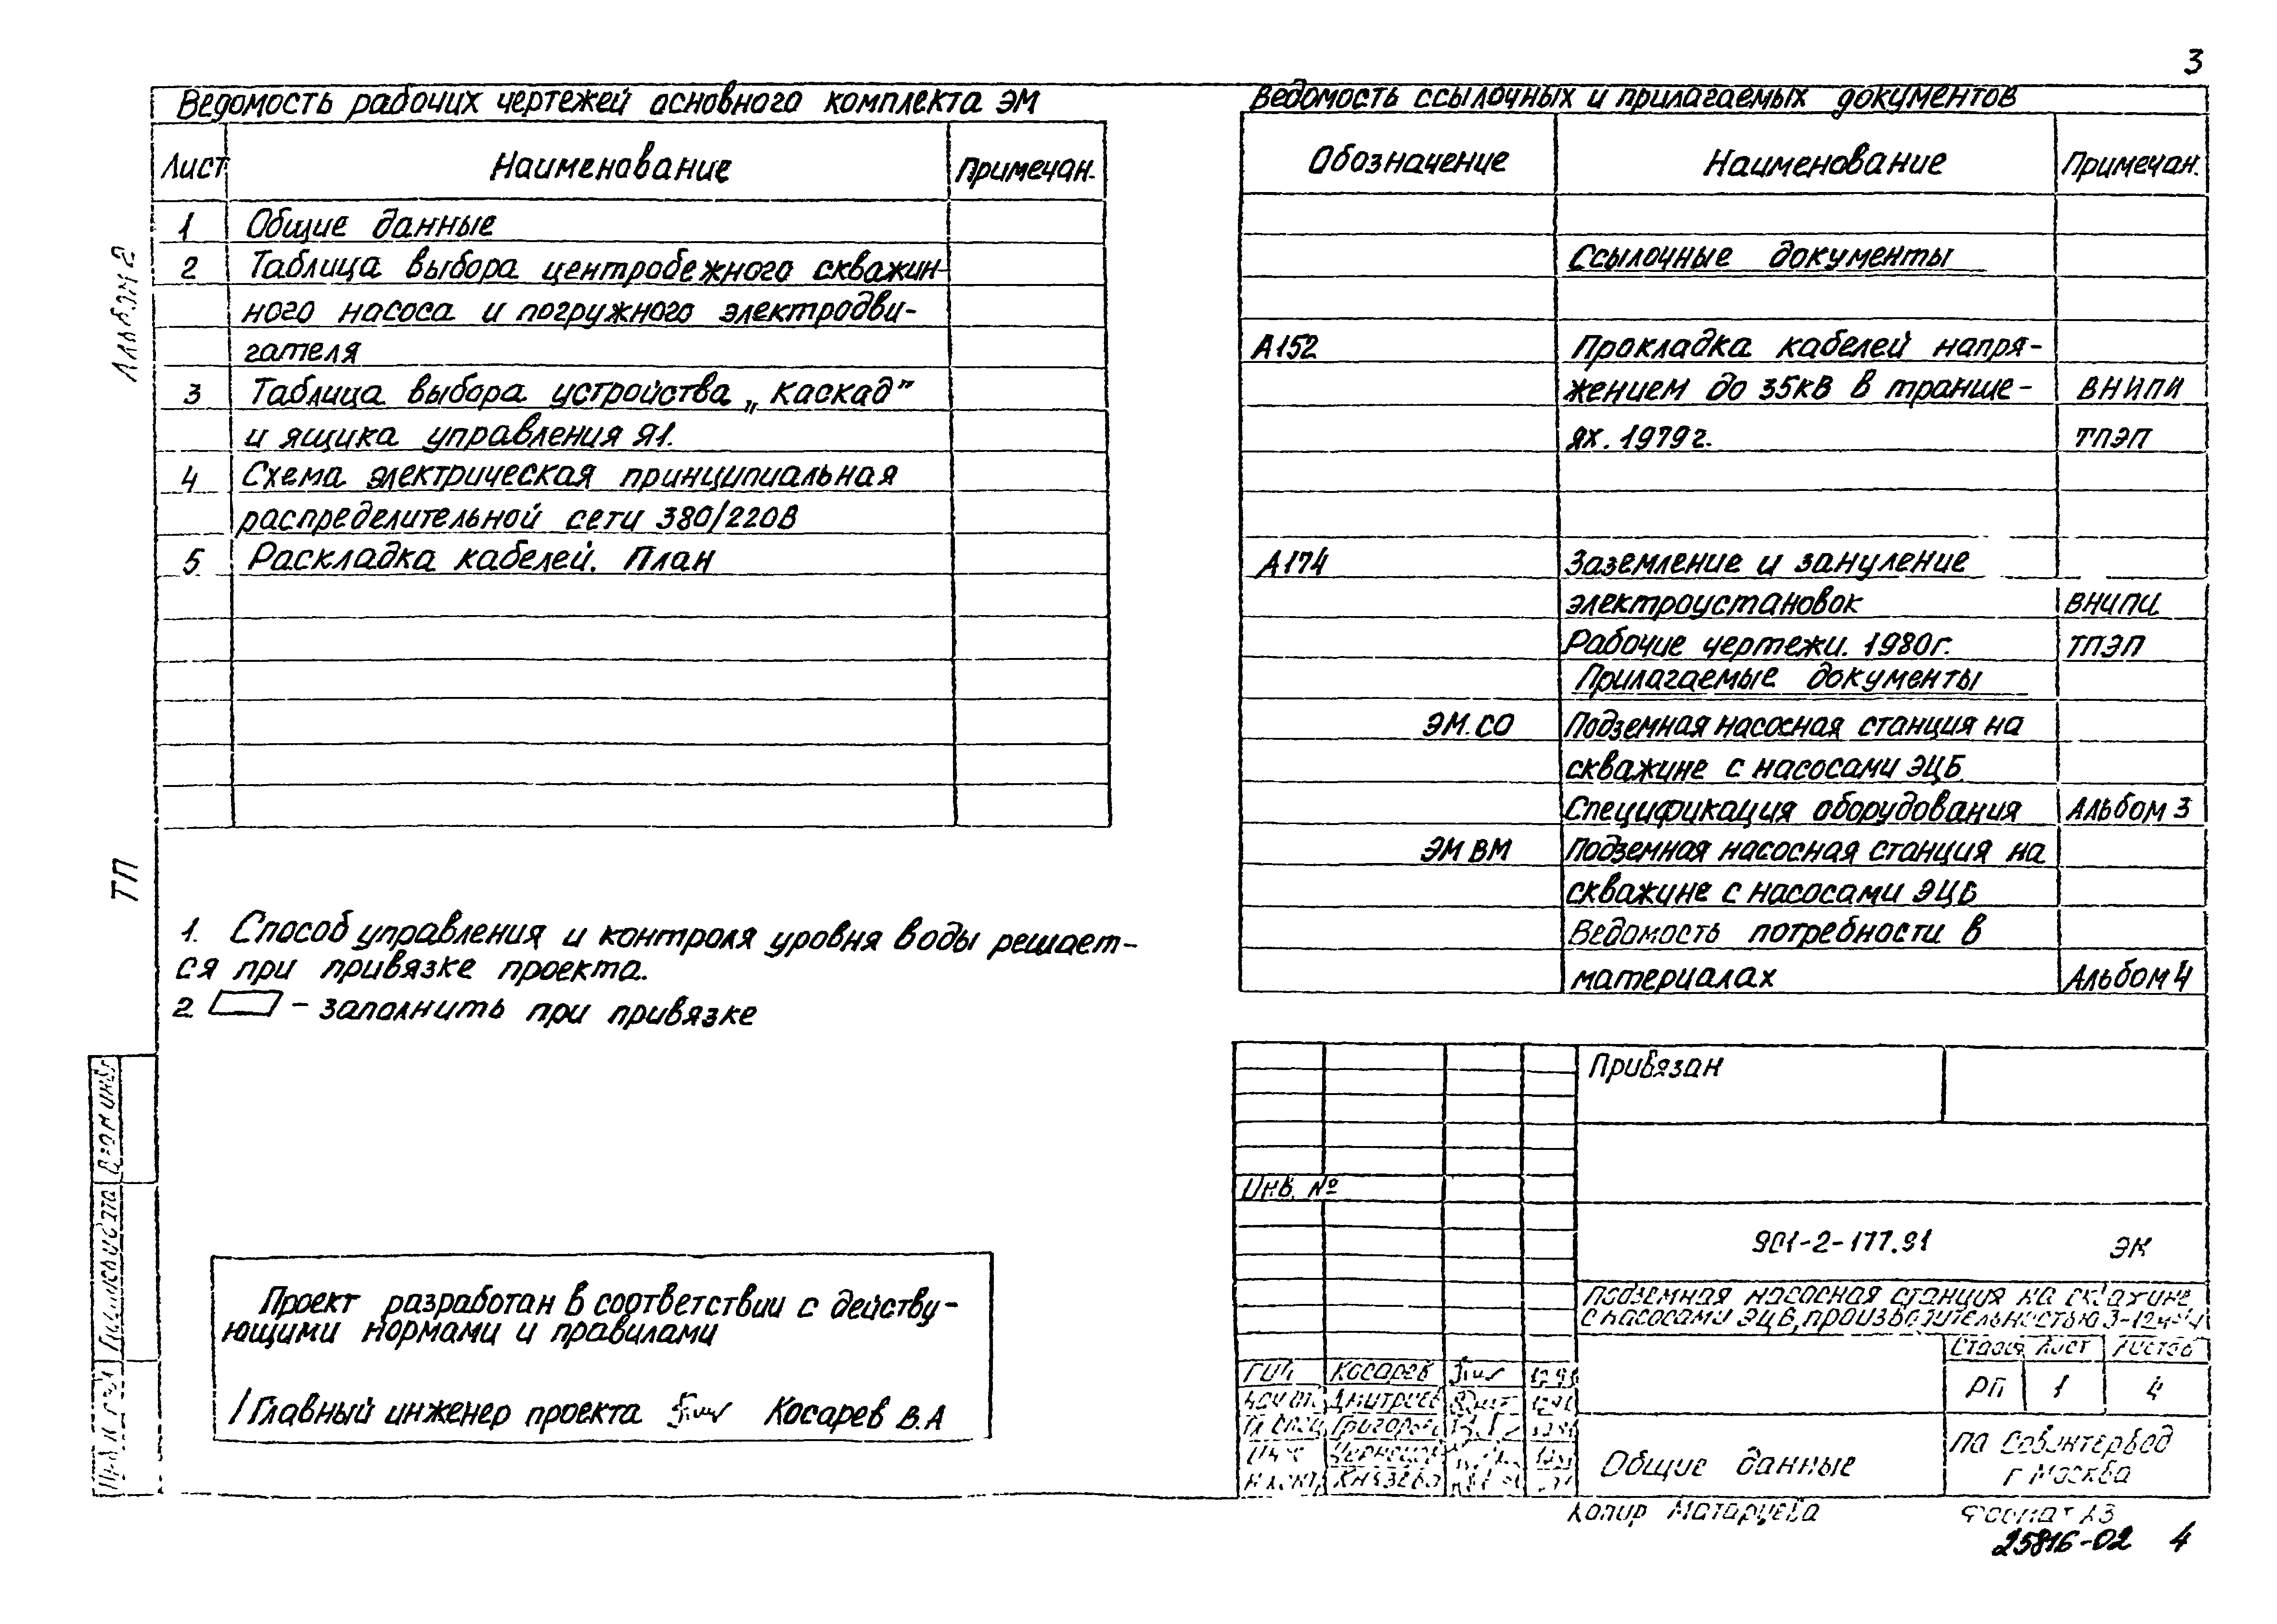 3
Ведомость рабочих чертежей основного комплекта ЭМ
Лист Наименование Примечан.
1 Общие данные
2 Таблица выбора центробежного скважин-
ного насоса и погружного электродви-
гателя
3 Таблица выбора устройства „Каскад"
и ящика управления Я1.
4 Схема электрическая принципиальная
распределительной сети 380/220В
5 Раскладка кабелей. План
1. Способ управления и контроля уровня воды решает-
ся при привязке проекта.
2 – заполнить при привязке
Проект разработан в соответствии с действу-
ющими нормами и правилами
Главный инженер проекта Косарев В.А
Альбом 2
ТП
Ведомость ссылочных и прилагаемых документов
Обозначение Наименование Примечан.
Ссылочные документы
А152 Прокладка кабелей напря-
жением до 35кВ в транше- ВНИПИ
ях. 1979г. ТПЭП
А174 Заземление и зануление
электроустановок ВНИПИ
Рабочие чертежи. 1980г. ТПЭП
Прилагаемые документы
ЭМ.СО Подземная насосная станция на
скважине с насосами ЭЦВ
Спецификация оборудования Альбом 3
ЭМ ВМ Подземная насосная станция на
скважине с насосами ЭЦВ
Ведомость потребности в
материалах Альбом 4
Привязан
Инв. №
901-2-177.91 ЭК
Подземная насосная станция на скважине
с насосами ЭЦВ, производительностью
Стадия Лист Листов
РП 1 4
ГИП Косарев
Дмитриев
Общие данные
г Москва
Копир Матарцева
Формат А3
25816-02 4